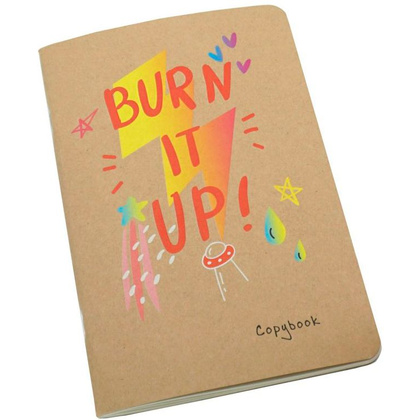 BURN
IT
UP!
Copybook